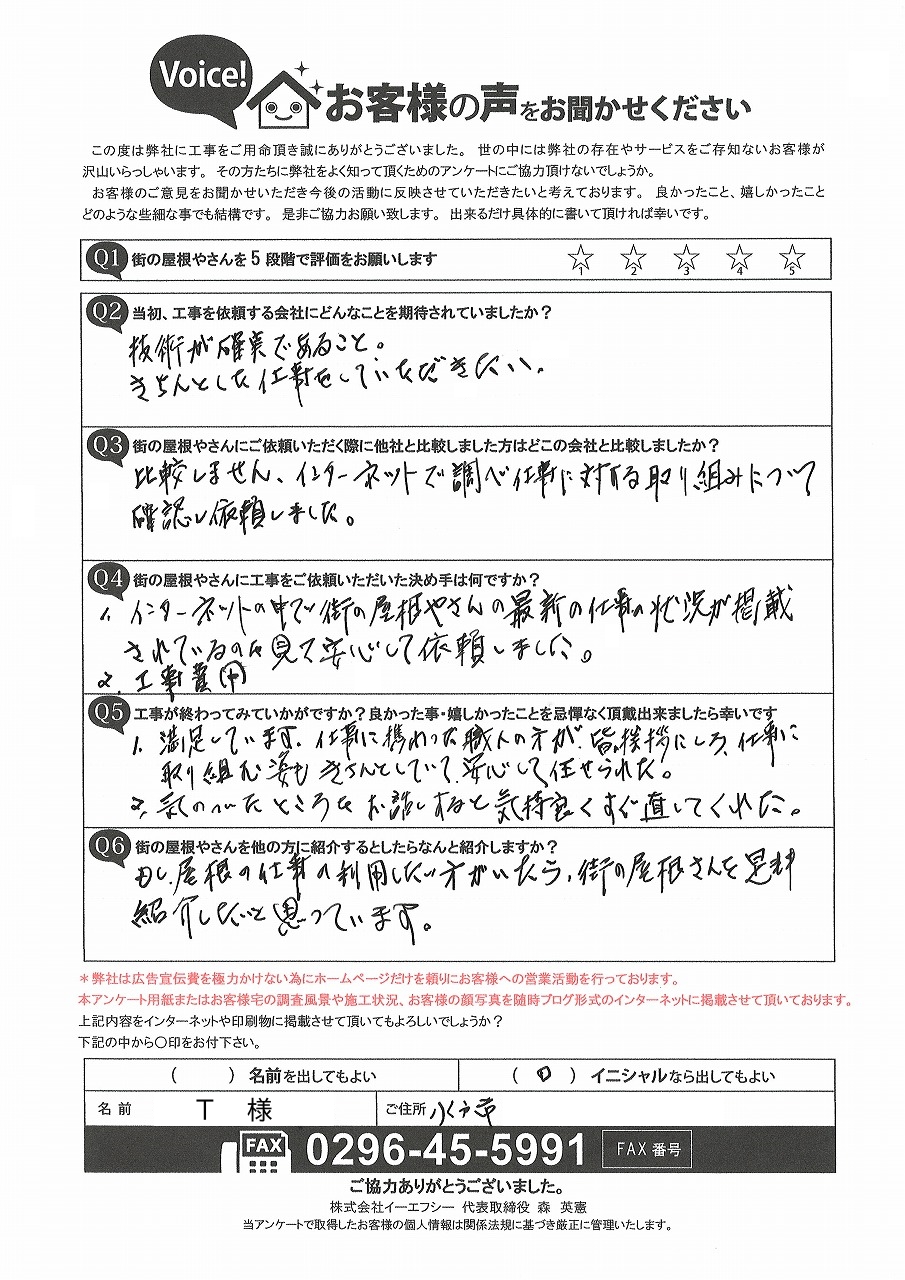 Voice!
お客様の声をお聞かせください
この度は弊社に工事をご用命頂き誠にありがとうございました。 世の中には弊社の存在やサービスをご存知ないお客様が
沢山いらっしゃいます。 その方たちに弊社をよく知って頂くためのアンケートにご協力頂けないでしょうか。
お客様のご意見をお聞かせいただき今後の活動に反映させていただきたいと考えております。 良かったこと、嬉しかったこと
どのような些細な事でも結構です。 是非ご協力お願い致します。 出来るだけ具体的に書いて頂ければ幸いです。
Q1 街の屋根やさんを5段階で評価をお願いします
1 2 3 4 5
Q2 当初、工事を依頼する会社にどんなことを期待されていましたか?
技術が確実であること。
きちんとした仕事をしていただきたい。
Q3 街の屋根やさんにご依頼いただく際に他社と比較しました方はどこの会社と比較しましたか?
比較しません、インターネットで調べ仕事に対する取り組みについて
確認し依頼しました。
Q4 街の屋根やさんに工事をご依頼いただいた決め手は何ですか?
1. インターネットの中で街の屋根やさんの最新の仕事の状況が掲載
されているのを見て安心して依頼しました。
2. 工事費用
Q5 工事が終わってみていかがですか?良かった事・嬉しかったことを忌憚なく頂戴出来ましたら幸いです
1. 満足しています。仕事に携わった職人の方が、皆挨拶にしろ、仕事に
取り組む姿もきちんとしていて、安心して任せられた。
2. 気のついたところをお話しすると気持良くすぐ直してくれた。
Q6 街の屋根やさんを他の方に紹介するとしたらなんと紹介しますか?
もし、屋根の仕事の利用したい方がいたら、街の屋根さんを是非
紹介したいと思っています。
＊弊社は広告宣伝費を極力かけない為にホームページだけを頼りにお客様への営業活動を行っております。
本アンケート用紙またはお客様宅の調査風景や施工状況、お客様の顔写真を随時ブログ形式のインターネットに掲載させて頂いております。
上記内容をインターネットや印刷物に掲載させて頂いてもよろしいでしょうか？
下記の中から○印をお付下さい。
( ) 名前を出してもよい ( O ) イニシャルなら出してもよい
名前 T 様 ご住所
FAX 0296-45-5991 FAX番号
ご協力ありがとうございました。
株式会社イーエフシー 代表取締役 森 英憲
当アンケートで取得したお客様の個人情報は関係法規に基づき厳正に管理いたします。